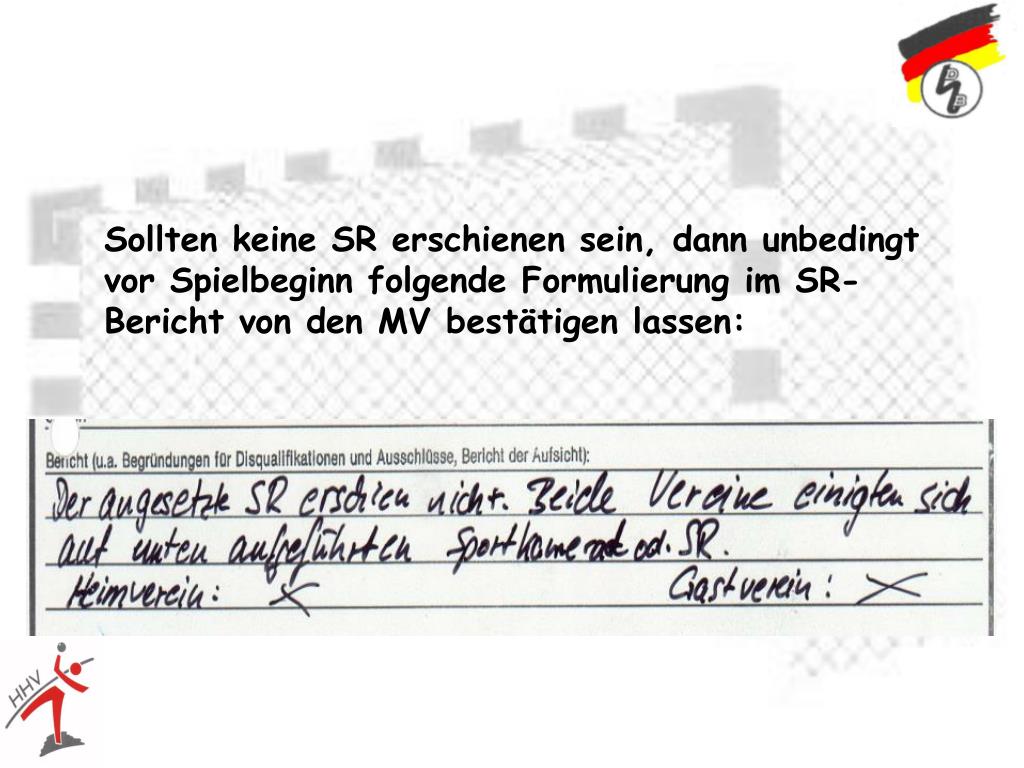 DHB
Sollten keine SR erschienen sein, dann unbedingt
vor Spielbeginn folgende Formulierung im SR-
Bericht von den MV bestätigen lassen:
Bericht (u.a. Begründungen für Disqualifikationen und Ausschlüsse, Bericht der Aufsicht):
Der angesetzte SR erschien nicht. Beide Vereine einigten sich
auf unten aufgeführten Sportkamerad od. SR.
Heimverein: X Gastverein: X
HHV